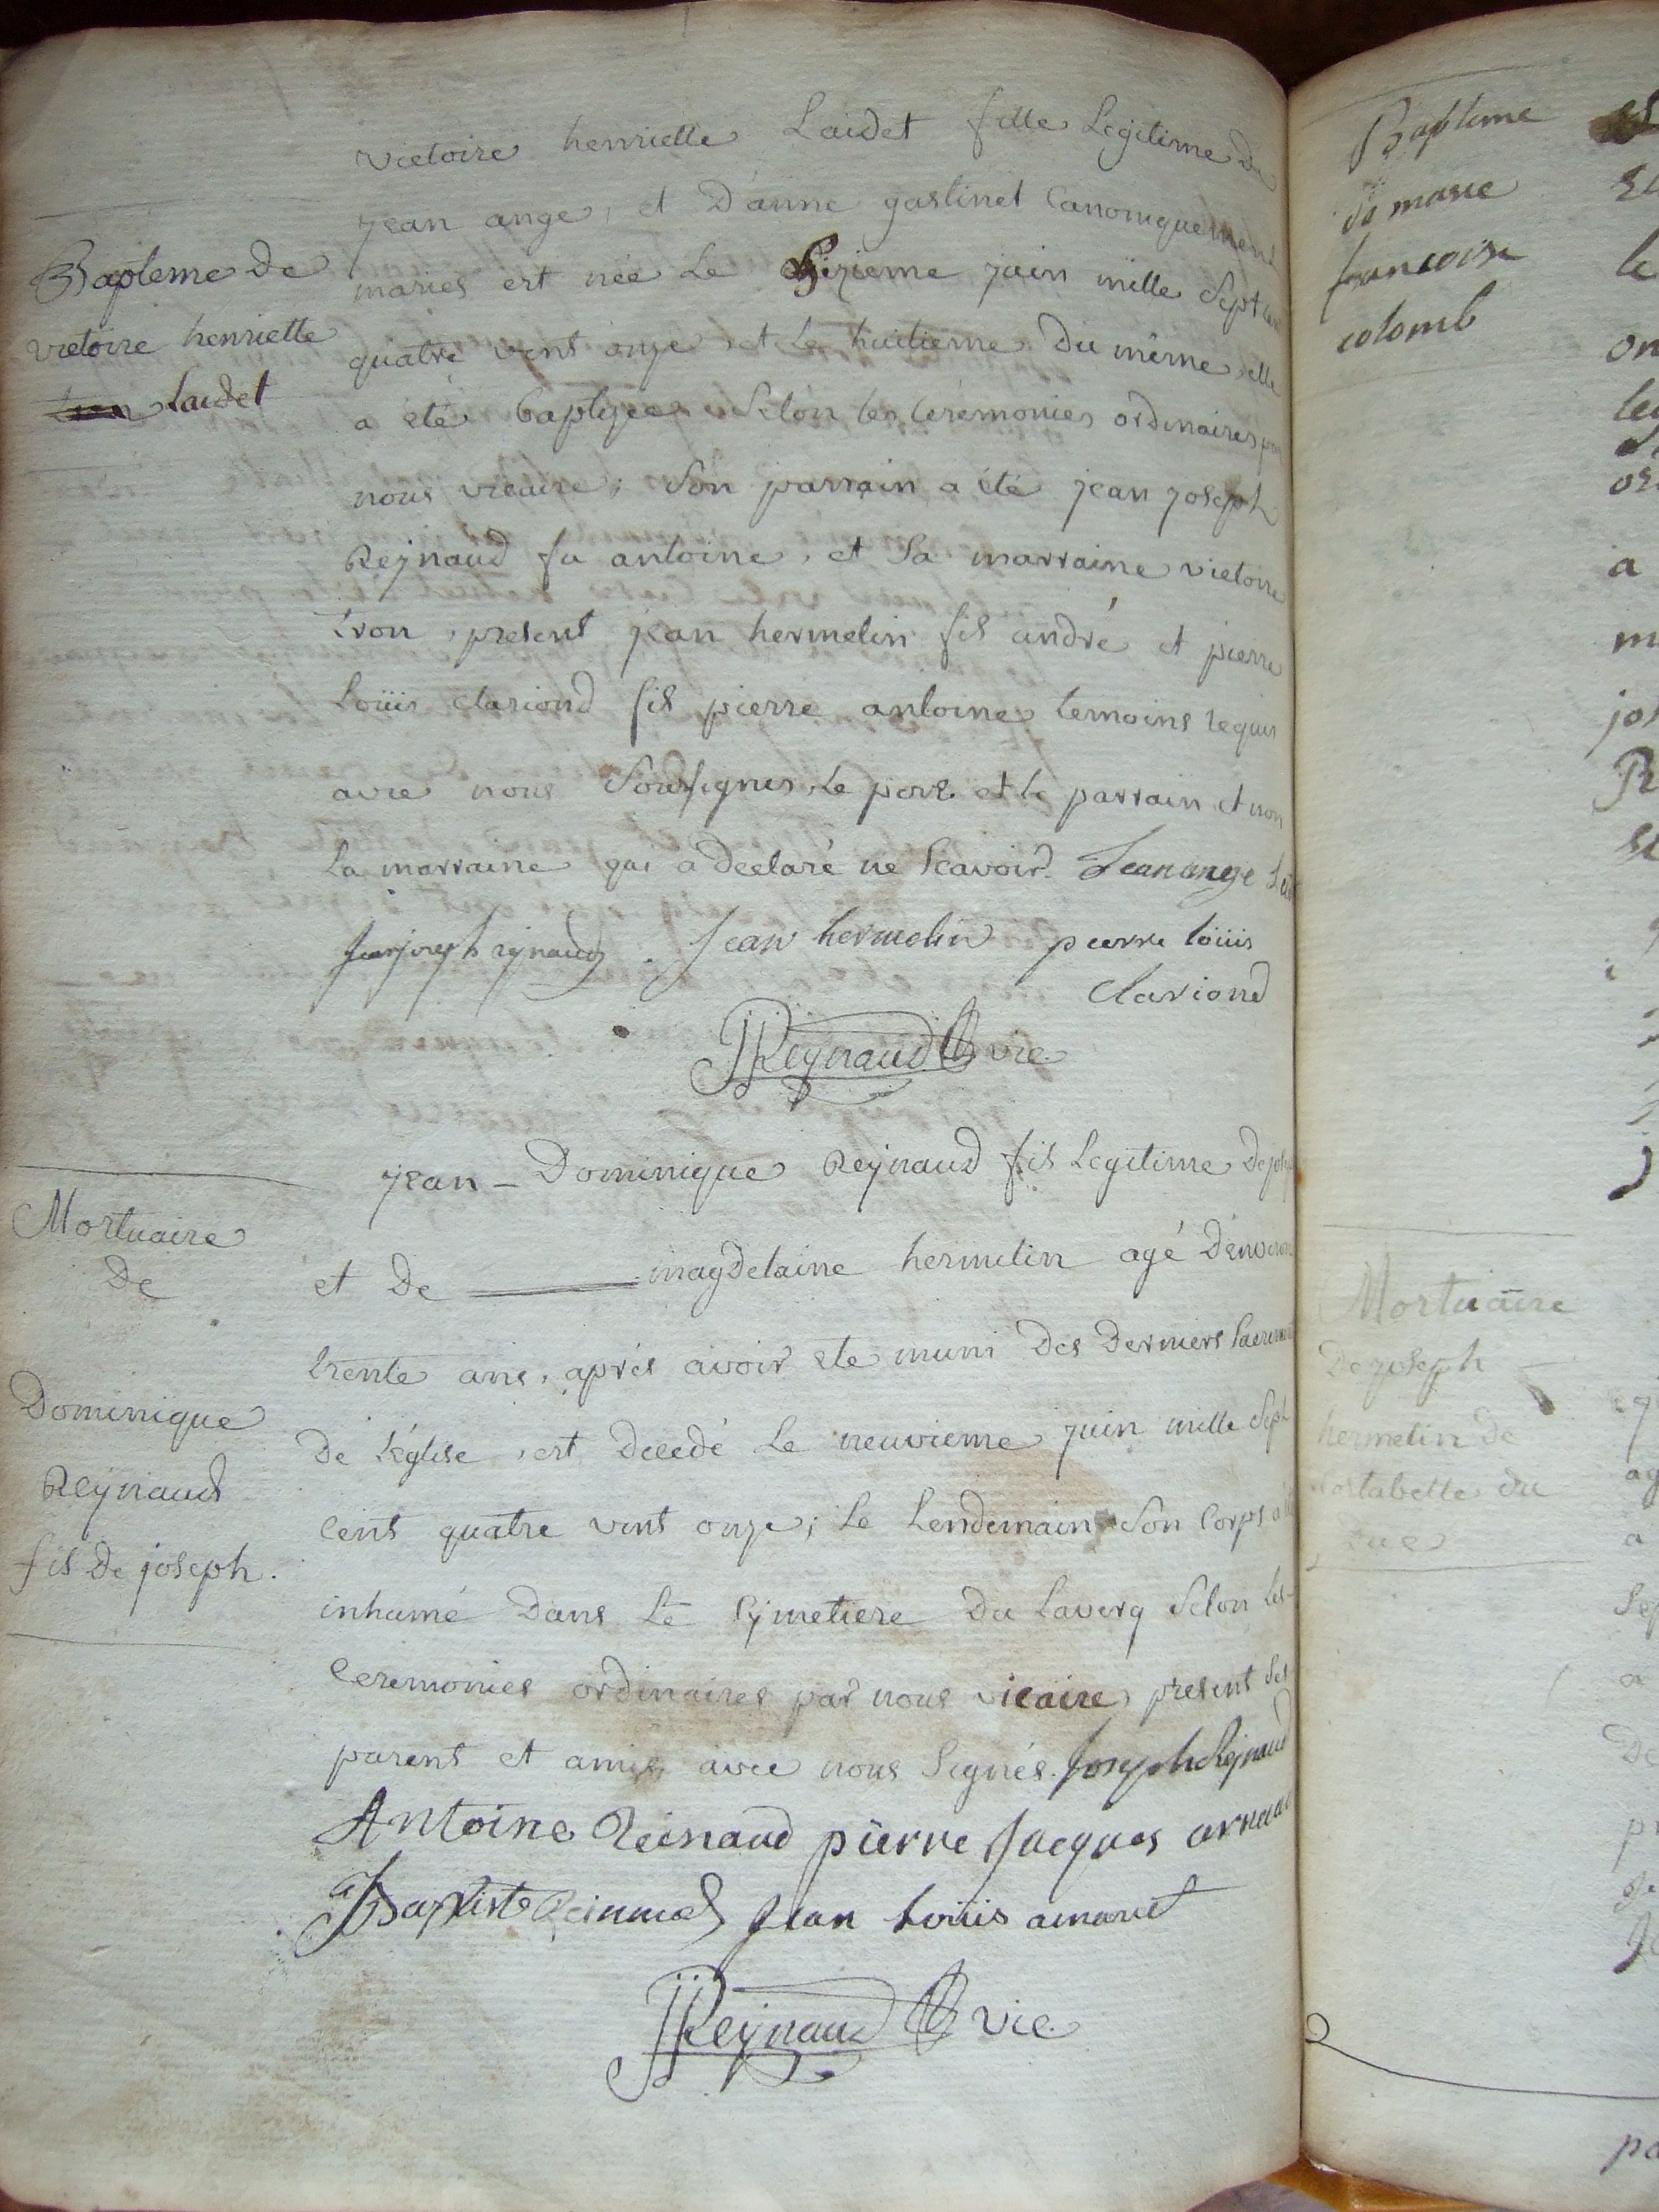 Bapteme de
victoire henriette
Laidet
victoire henriette Laidet fille Legitime de
jean ange, et D'anne gastinel Canoniquement
mariés est née Le juin mille Sept cent
quatre vint onze et Le huitieme Du même elle
a été baptisée Selon les Cérémonies ordinaires par
nous vicaire; Son parrain a été jean joseph
Reynaud fu antoine, et Sa marraine victoire
tron, present jean hermelin fils andré et pierre
Louis clariond fils pierre antoine temoins requis
avec nous Soussignes, Le pere et le parrain et non
La marraine qui a Declaré ne Scavoir. Jean ange
Jean joseph rynaud. Jean hermelin pierre louis
Clariond
JJReynaud vic.
Mortuaire
De
Dominique
Reynaud
fils De joseph.
jean - Dominique Reynaud fils Legitime De
et De magdelaine hermelin agé D'environ
trente ans, aprés avoir ete muni Des Derniers Sacremens
De l'église, est Decedé Le neuvieme juin mille Sept
Cent quatre vint onze; Le Lendemain Son Corps
inhumé Dans Le Cymetiere Du Laverq Selon Les
Ceremonies ordinaires par nous vicaire, present Ses
parents et amis avec nous Signés. Joseph Reynaud
Antoine Reinaud pierre Jacques arnaud
J Baptiste Reinnaud Jean Louis
JJReynaud vic.
Bapteme
de marie
francoise
colomb
Mortuaire
De joseph
hermelin de
Costabelle du